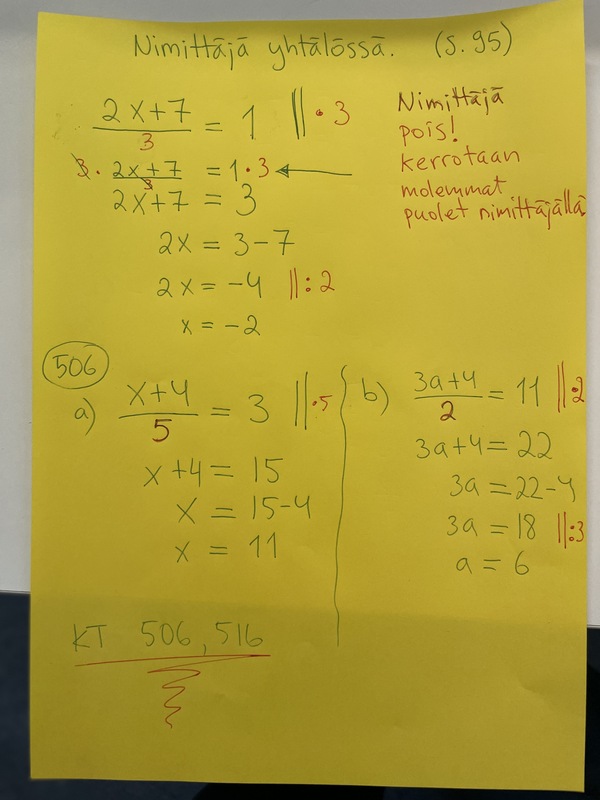 Nimittäjä yhtälössä. (s. 95)
2x+7/3 = 1 || · 3
3 · 2x+7/3 = 1 · 3 ←
2x+7 = 3
2x = 3-7
2x = -4 ||: 2
x = -2
Nimittäjä
pois!
kerrotaan
molemmat
puolet nimittäjällä
506
a) x+4/5 = 3 || ·5
x+4 = 15
x = 15-4
x = 11
b) 3a+4/2 = 11 || ·2
3a+4 = 22
3a = 22-4
3a = 18 ||:3
a = 6
KT 506, 516